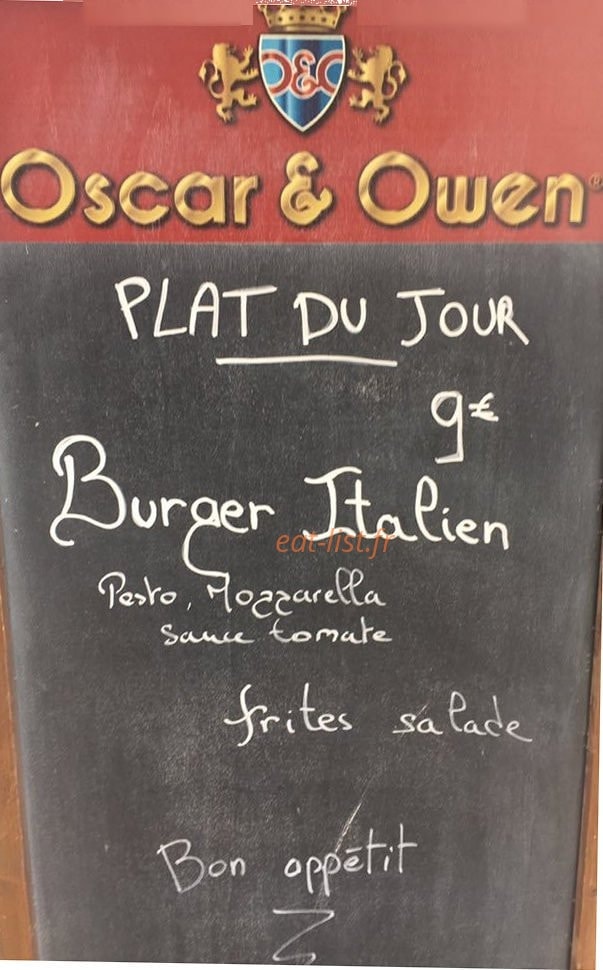 O&O
Oscar & Owen®
PLAT DU JOUR
9€
Burger Italien
eat-list.fr
Pesto, Mozzarella
sauce tomate
frites salade
Bon appétit